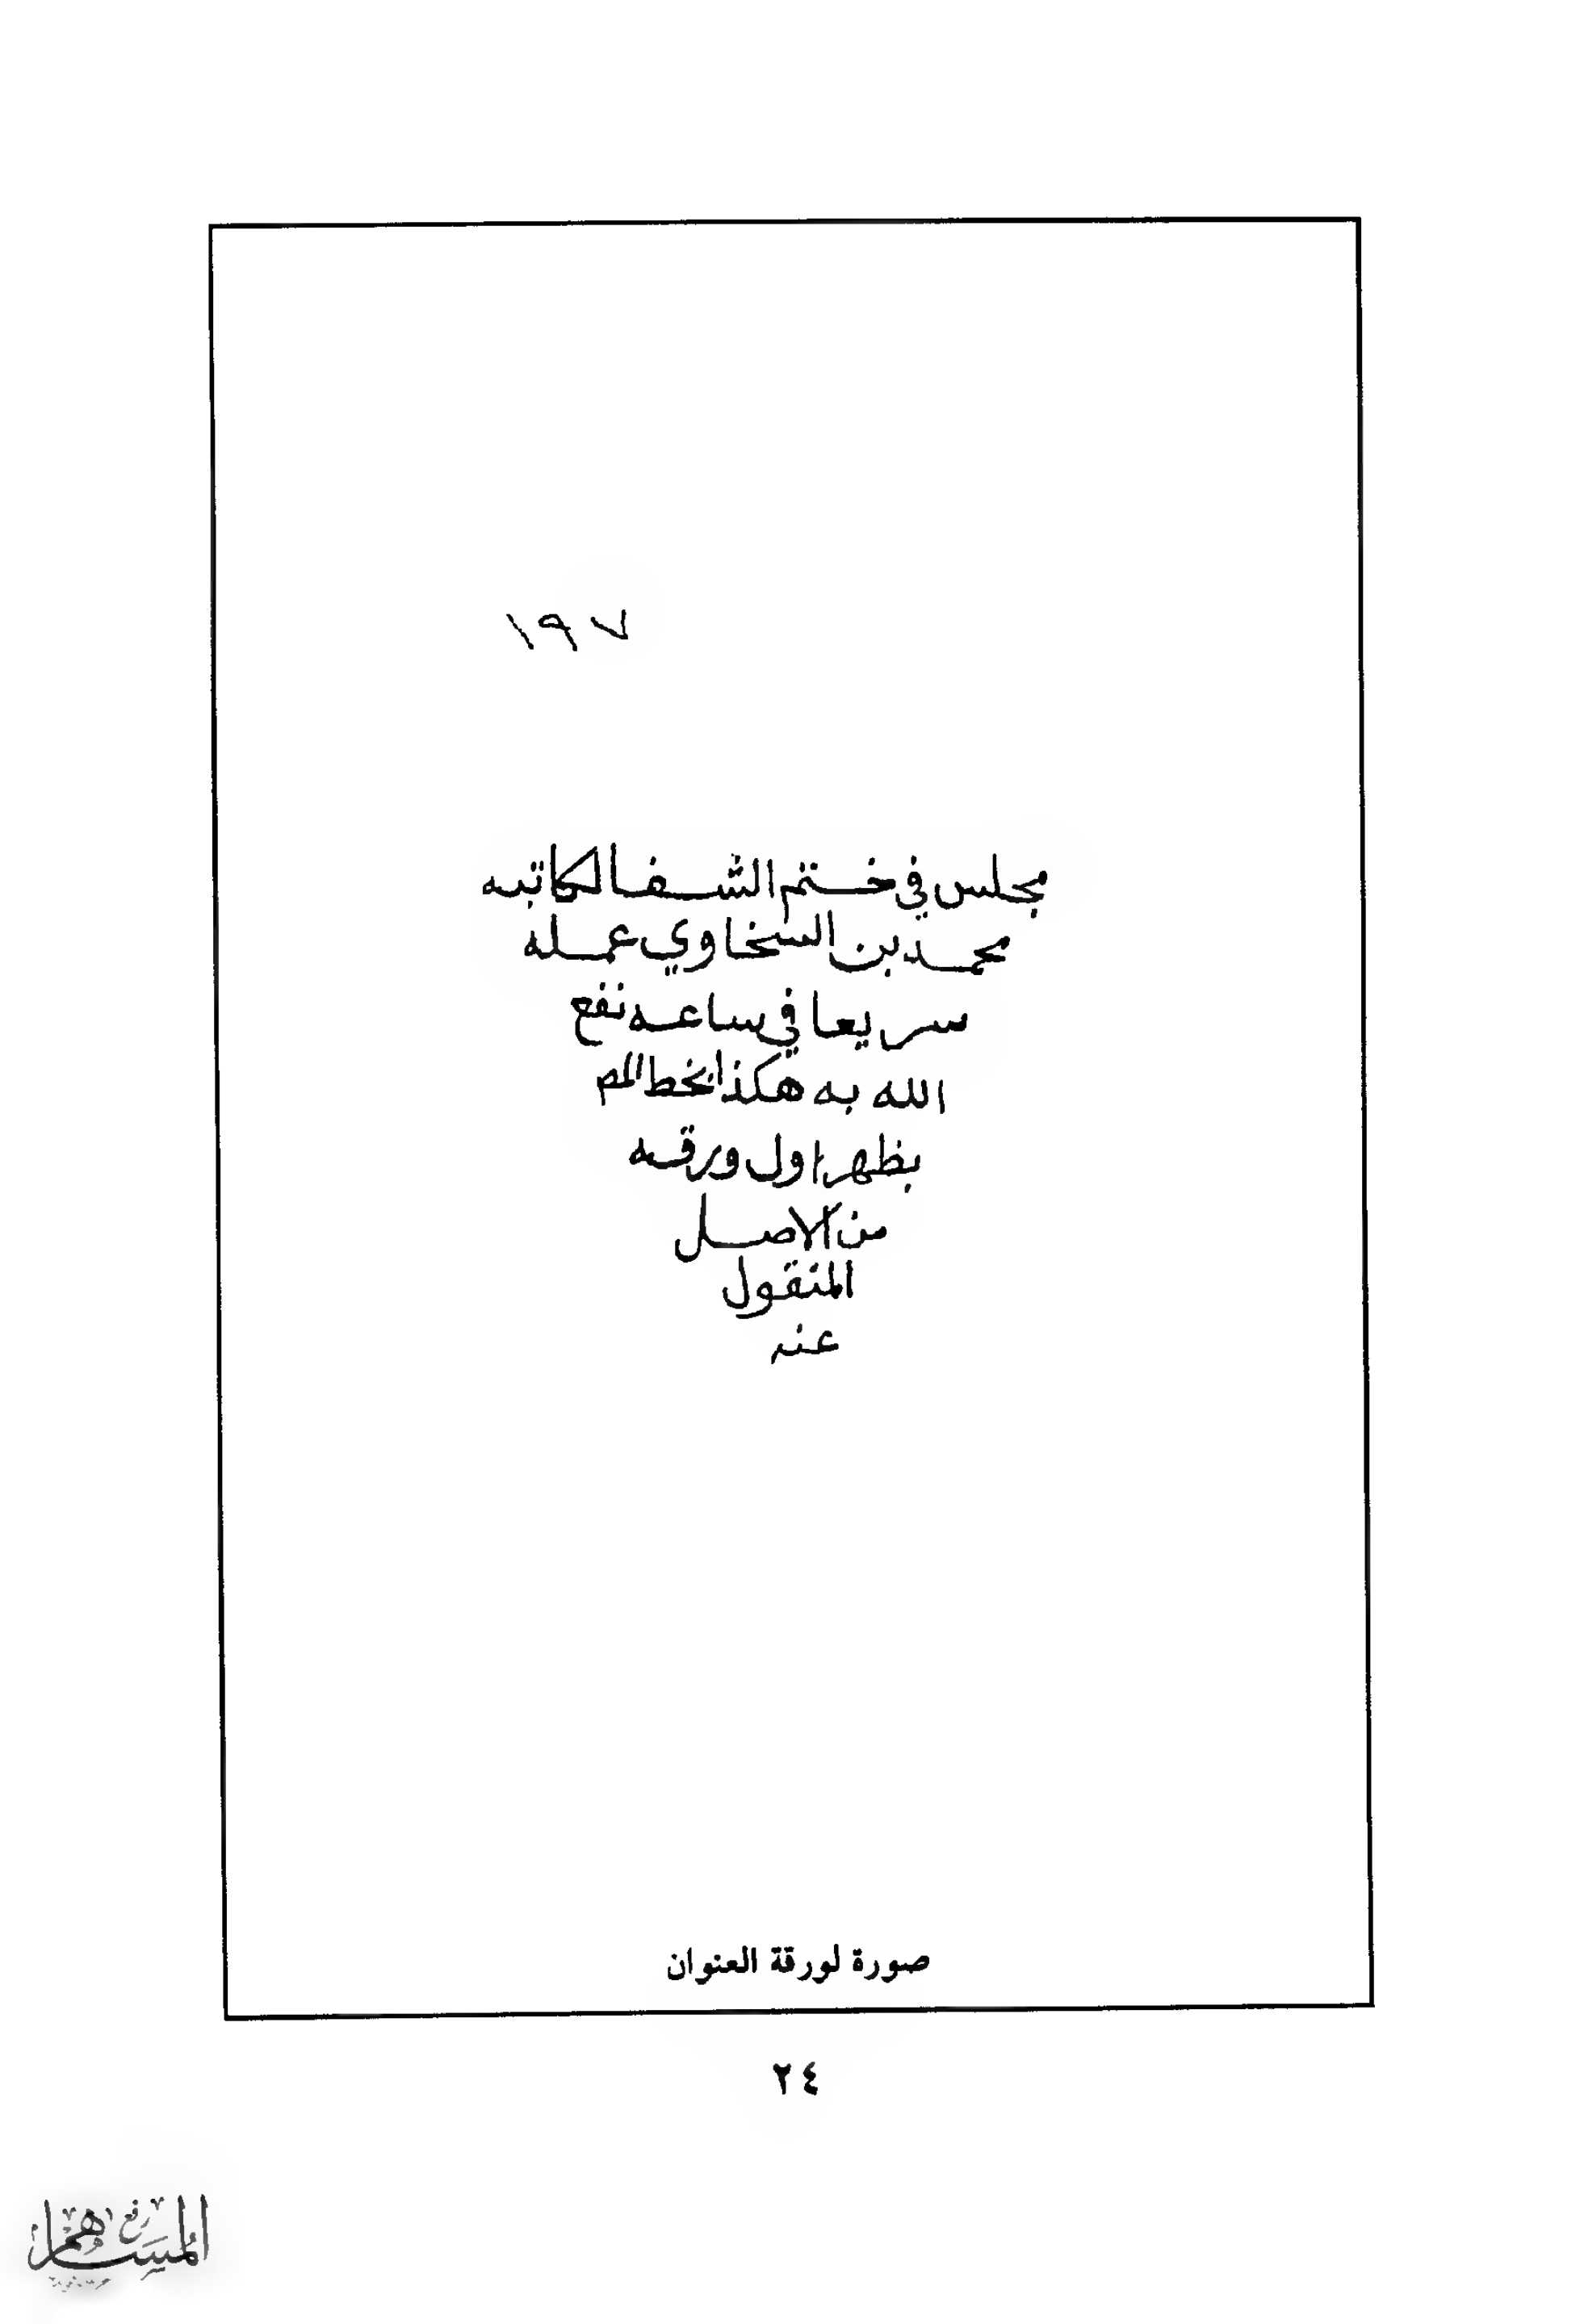 ١٩٧
مجلس في ختم الشفا لكاتبه
محمد بن السخاوي عمله
سريعا في ساعه نفع
الله به هكذا بخط المم
بظهر اول ورقه
من الاصل
المنقول
عنه
صورة لورقة العنوان
٢٤